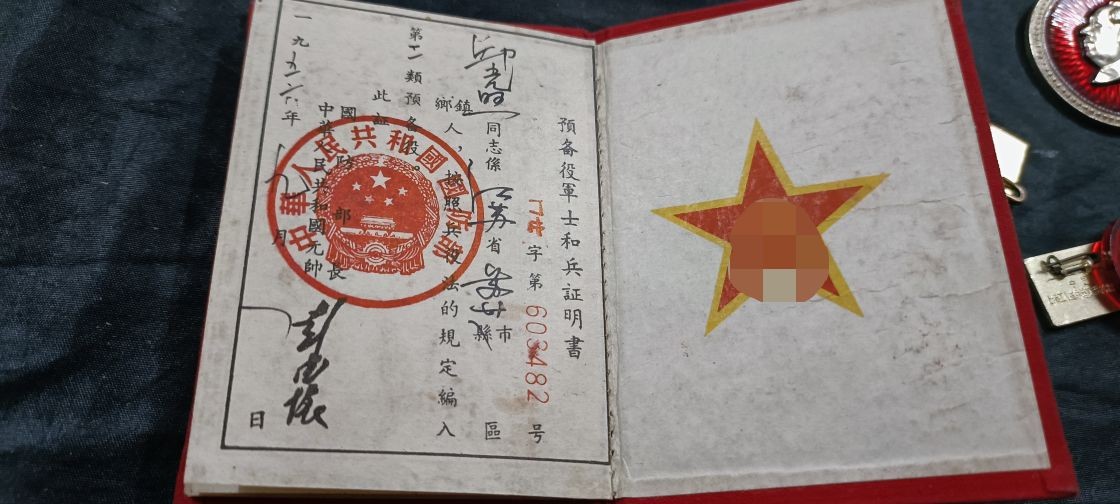 預备役軍士和兵証明書
字第603482号
同志係江苏省苏州市縣區
鄉鎮人，按照兵役法的規定編入
第二類預备役。
此証
中華人民共和國國防部
國防部長
中華人民共和國元帥
彭德懷
一九五六年八月日